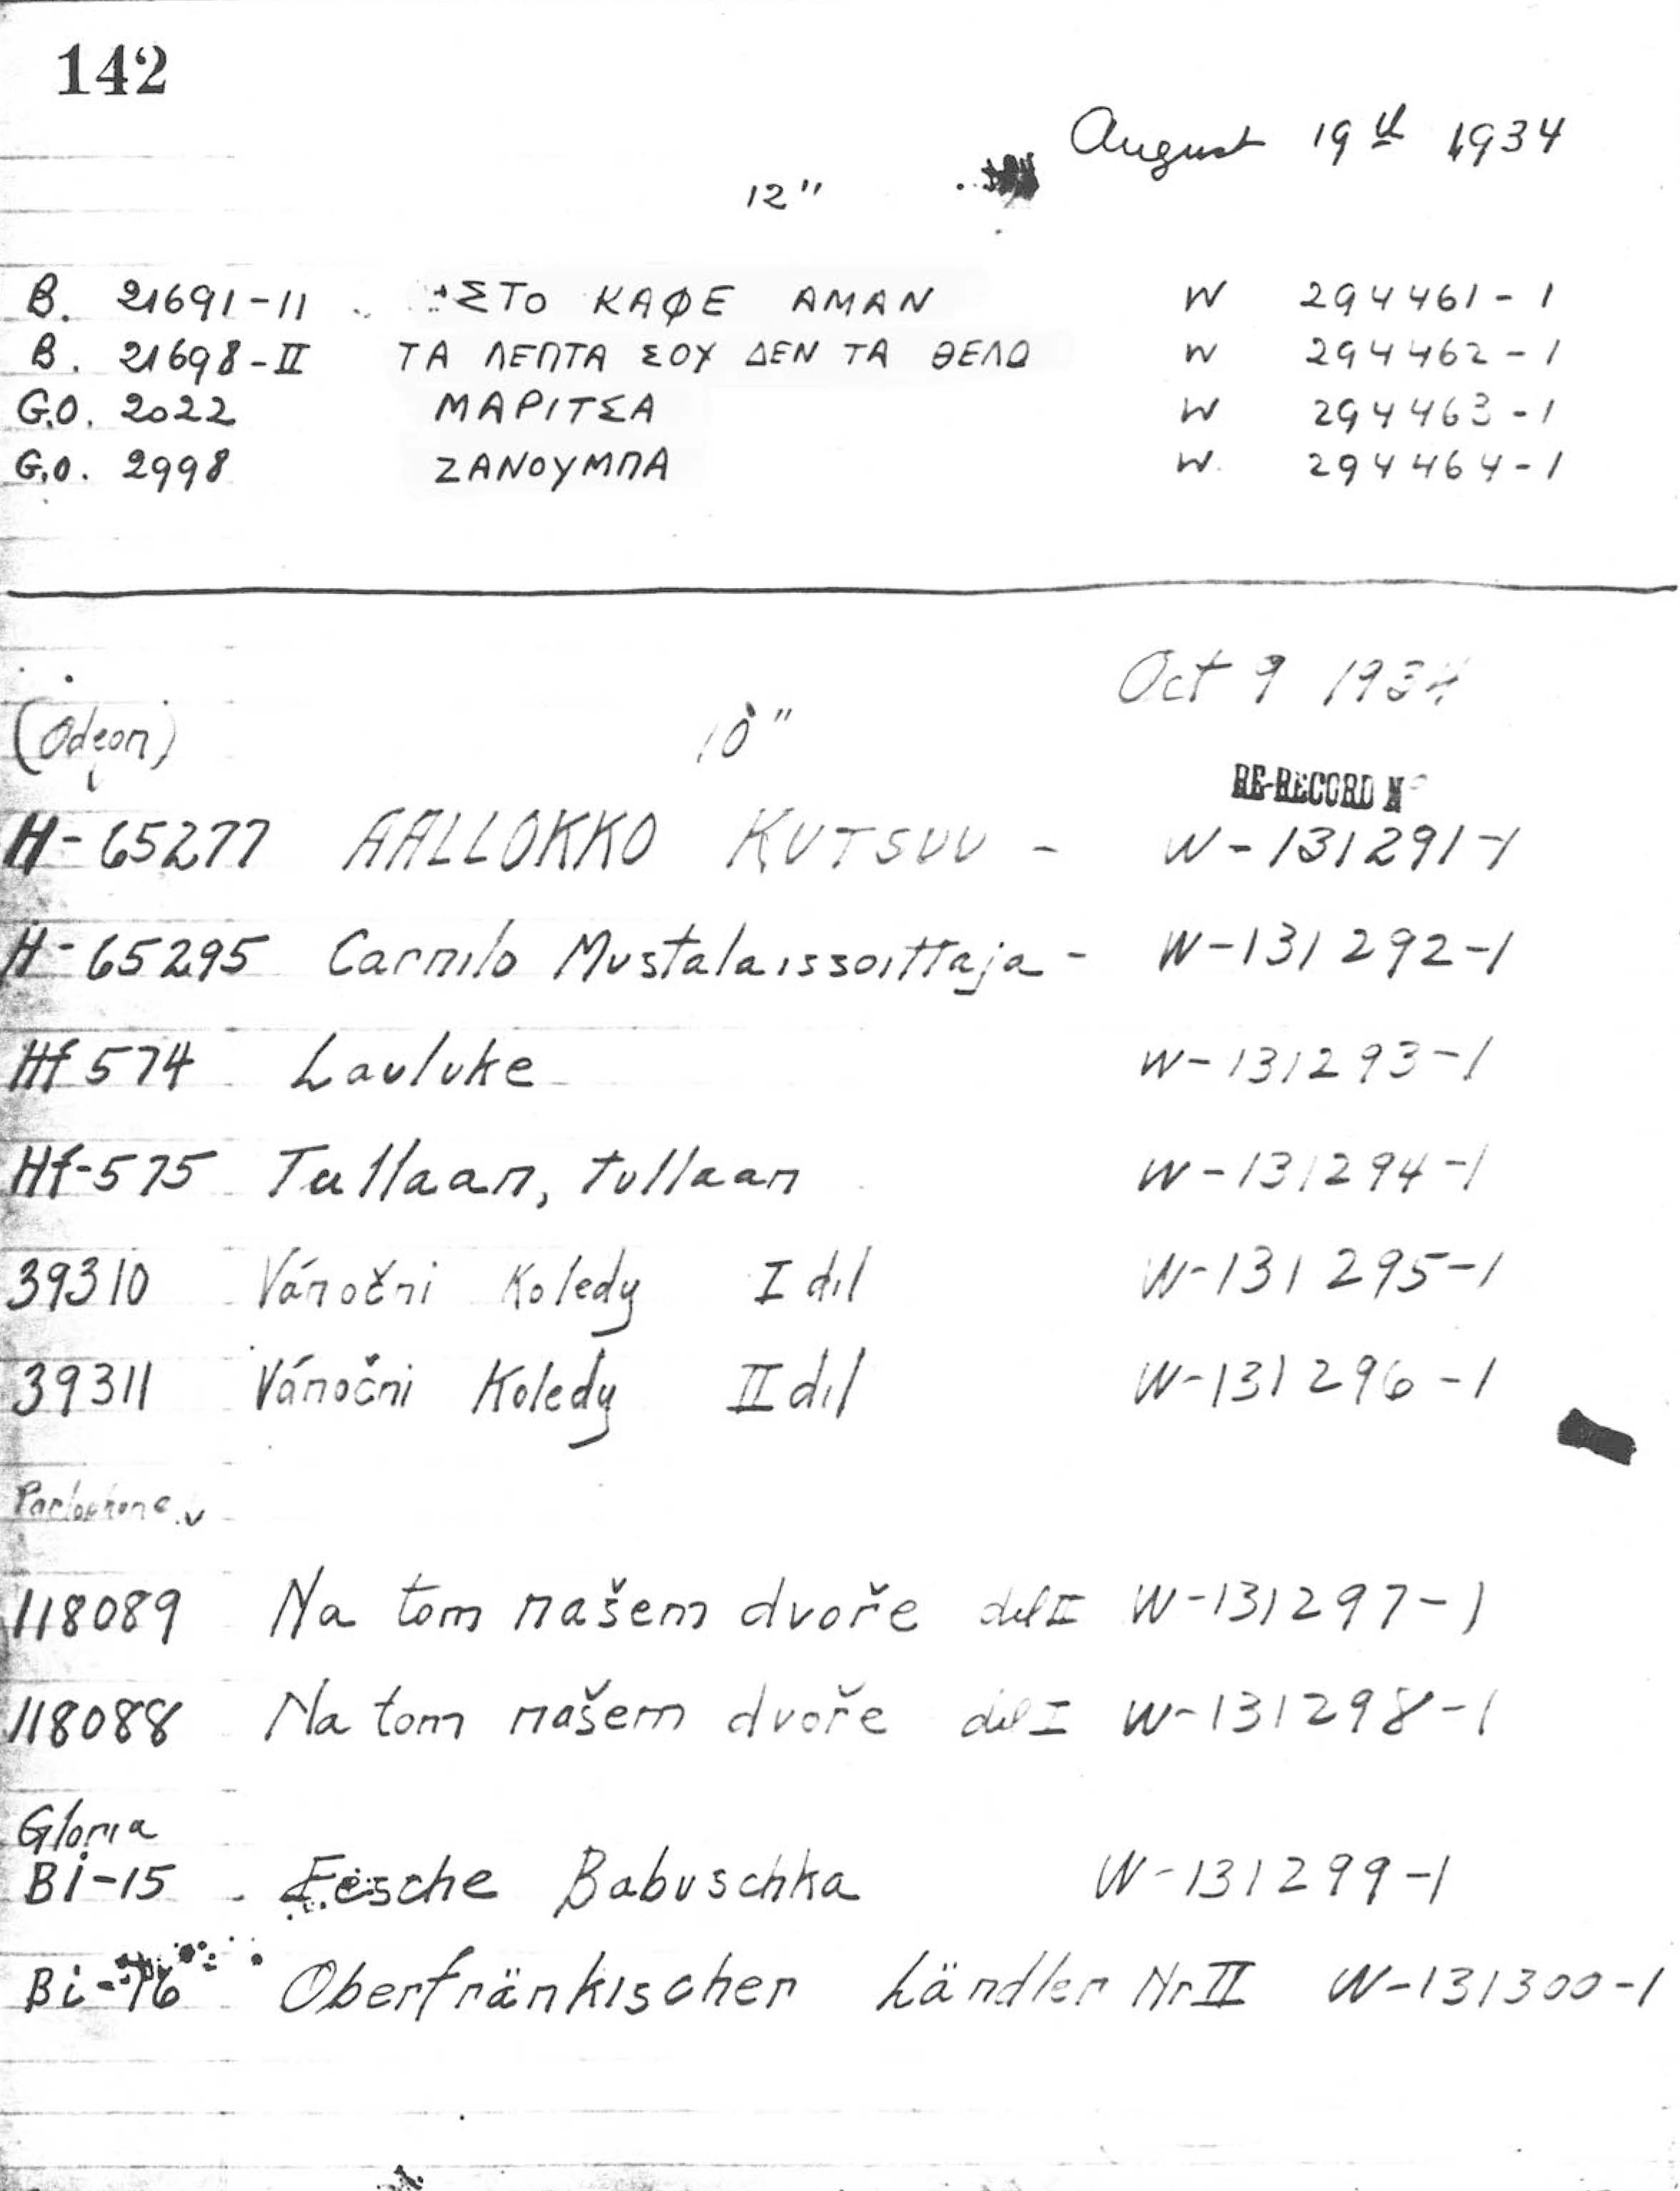 142
August 19th 1934
12"
B. 21691-11 ΣΤΟ ΚΑΦΕ ΑΜΑΝ W 294461-1
B. 21698-II ΤΑ ΛΕΠΤΑ ΣΟΥ ΔΕΝ ΤΑ ΘΕΛΩ W 294462-1
G.O. 2022 ΜΑΡΙΤΣΑ W 294463-1
G.O. 2998 ΖΑΝΟΥΜΠΑ W. 294464-1
Oct 9 1934
(Odeon) 10"
RE-RECORD No
H-65277 AALLOKKO KUTSUU - W-131291-1
H-65295 Carmilo Mustalaissoittaja - W-131292-1
Hf 574 Lauluke W-131293-1
Hf-575 Tullaan, tullaan W-131294-1
39310 Vánočni Koledy I dil W-131295-1
39311 Vánočni Koledy II dil W-131296-1
Parlophone
118089 Na tom našem dvoře del II W-131297-1
118088 Na tom našem dvoře del I W-131298-1
Gloria
Bi-15 Fesche Babuschka W-131299-1
Bi-16 Oberfränkischer Ländler Nr II W-131300-1